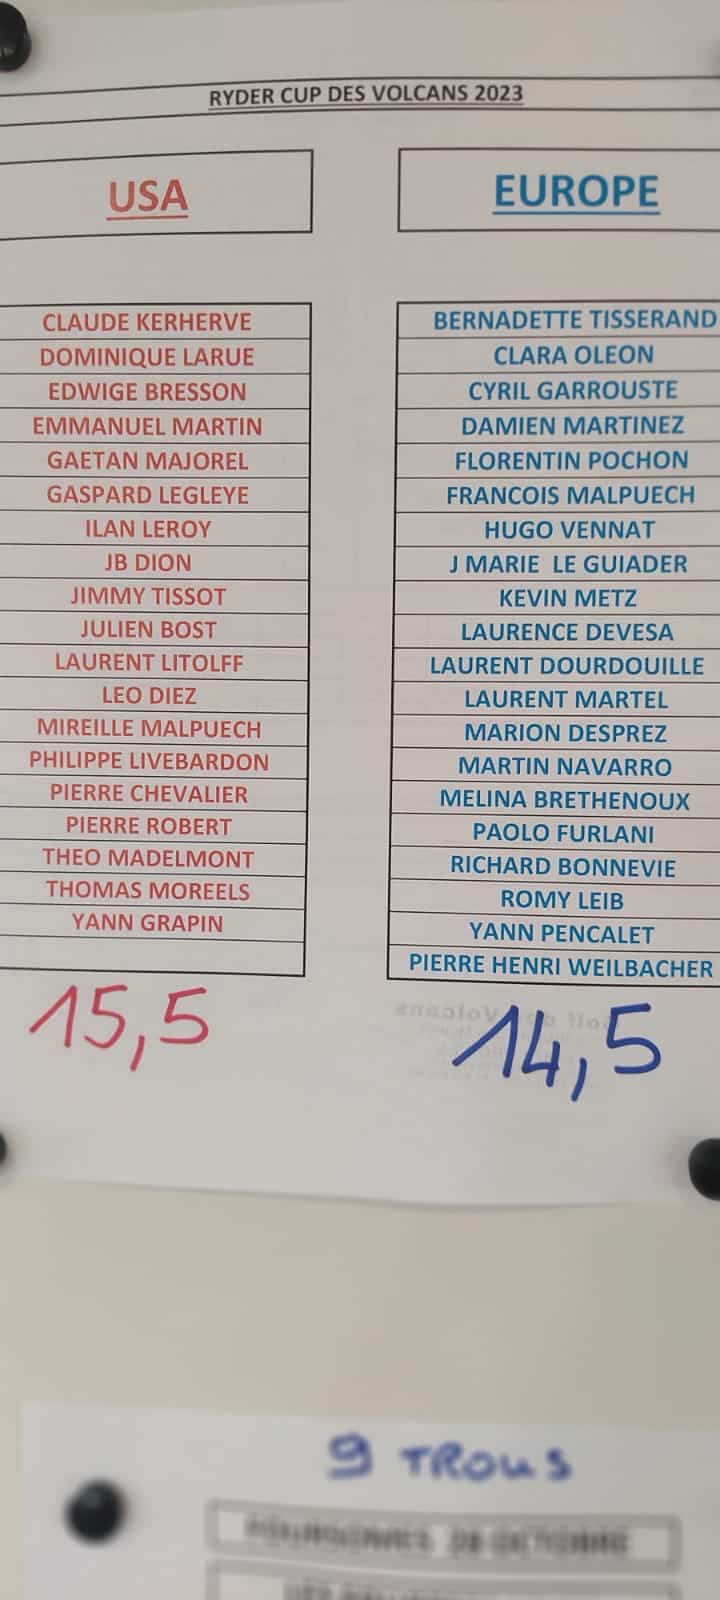 RYDER CUP DES VOLCANS 2023
USA
CLAUDE KERHERVE
DOMINIQUE LARUE
EDWIGE BRESSON
EMMANUEL MARTIN
GAETAN MAJOREL
GASPARD LEGLEYE
ILAN LEROY
JB DION
JIMMY TISSOT
JULIEN BOST
LAURENT LITOLFF
LEO DIEZ
MIREILLE MALPUECH
PHILIPPE LIVEBARDON
PIERRE CHEVALIER
PIERRE ROBERT
THEO MADELMONT
THOMAS MOREELS
YANN GRAPIN
15,5
EUROPE
BERNADETTE TISSERAND
CLARA OLEON
CYRIL GARROUSTE
DAMIEN MARTINEZ
FLORENTIN POCHON
FRANCOIS MALPUECH
HUGO VENNAT
J MARIE LE GUIADER
KEVIN METZ
LAURENCE DEVESA
LAURENT DOURDOUILLE
LAURENT MARTEL
MARION DESPREZ
MARTIN NAVARRO
MELINA BRETHENOUX
PAOLO FURLANI
RICHARD BONNEVIE
ROMY LEIB
YANN PENCALET
PIERRE HENRI WEILBACHER
14,5
9 TROUS
OCTOBRE